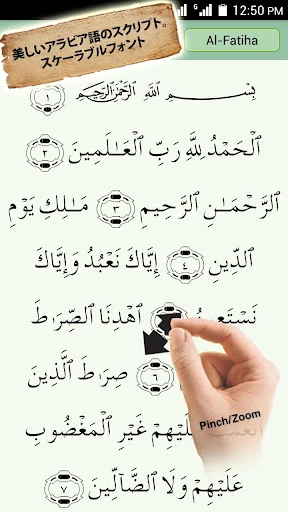 12:50 PM
美しいアラビア語のスクリプト。
スケーラブルフォント
Al-Fatiha
بِسْمِ ٱللَّهِ ٱلرَّحْمَـٰنِ ٱلرَّحِيمِ ١
ٱلْحَمْدُ لِلَّهِ رَبِّ ٱلْعَـٰلَمِينَ ٢
ٱلرَّحْمَـٰنِ ٱلرَّحِيمِ ٣ مَـٰلِكِ يَوْمِ
ٱلدِّينِ ٤ إِيَّاكَ نَعْبُدُ وَإِيَّاكَ
ٱهْدِنَا ٱلصِّرَٰطَ
٦ صِرَٰطَ ٱلَّذِينَ
عَلَيْهِمْ غَيْرِ ٱلْمَغْضُوبِ
عَلَيْهِمْ وَلَا ٱلضَّآلِّينَ ٧
Pinch/Zoom